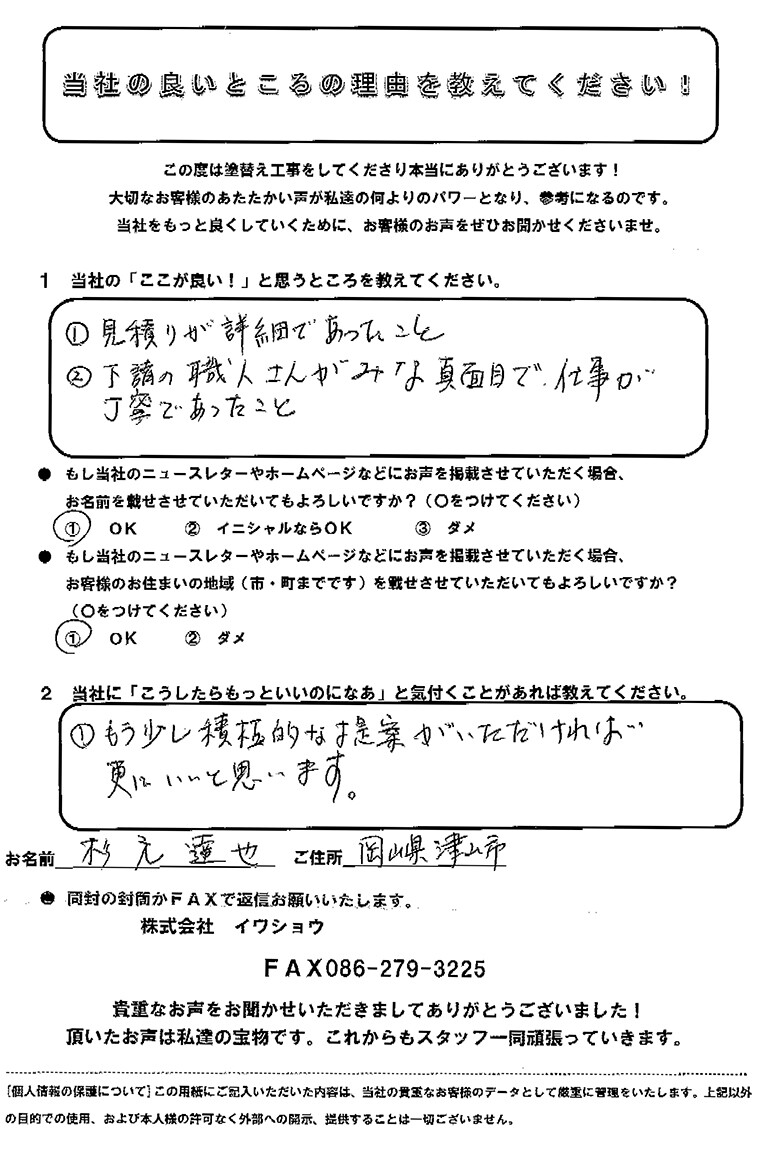 当社の良いところの理由を教えてください！
この度は塗替え工事をしてくださり本当にありがとうございます！
大切なお客様のあたたかい声が私達の何よりのパワーとなり、参考になるのです。
当社をもっと良くしていくために、お客様のお声をぜひお聞かせくださいませ。
1 当社の「ここが良い！」と思うところを教えてください。
① 見積りが詳細であったこと
② 下請の職人さんがみな真面目で、仕事が
丁寧であったこと
● もし当社のニュースレターやホームページなどにお声を掲載させていただく場合、
お名前を載せさせていただいてもよろしいですか？（〇をつけてください）
① OK ② イニシャルならOK ③ ダメ
● もし当社のニュースレターやホームページなどにお声を掲載させていただく場合、
お客様のお住まいの地域（市・町までです）を載せさせていただいてもよろしいですか？
（〇をつけてください）
① OK ② ダメ
2 当社に「こうしたらもっといいのになあ」と気付くことがあれば教えてください。
① もう少し積極的な提案がいただければ
更にいいと思います。
お名前 杉元 蓮也 ご住所 岡山県津山市
● 同封の封筒かFAXで返信お願いいたします。
株式会社 イワショウ
FAX086-279-3225
貴重なお声をお聞かせいただきましてありがとうございました！
頂いたお声は私達の宝物です。これからもスタッフ一同頑張っていきます。
[個人情報の保護について]この用紙にご記入いただいた内容は、当社の貴重なお客様のデータとして厳重に管理をいたします。上記以外
の目的での使用、および本人様の許可なく外部への開示、提供することは一切ございません。